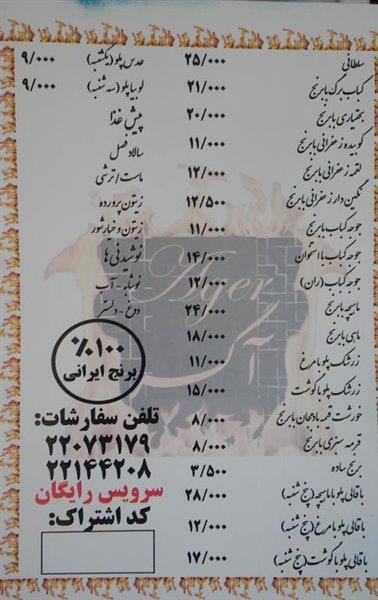 سلطانی ۲۵/۰۰۰
کباب برگ با برنج ۲۱/۰۰۰
بختیاری با برنج ۲۰/۰۰۰
کوبیده زعفرانی با برنج ۱۱/۰۰۰
لقمه زعفرانی با برنج ۱۲/۰۰۰
نگین دار زعفرانی با برنج ۱۲/۵۰۰
جوجه کباب با برنج ۱۱/۰۰۰
جوجه کباب با استخوان ۱۴/۰۰۰
جوجه کباب (ران) ۱۲/۰۰۰
ماهیچه با برنج ۲۴/۰۰۰
ماهی با برنج ۱۸/۰۰۰
زرشک پلو با مرغ ۱۱/۰۰۰
زرشک پلو با گوشت ۱۵/۰۰۰
خورشت قیمه بادمجان با برنج ۸/۰۰۰
قرمه سبزی با برنج ۸/۰۰۰
برنج ساده ۳/۵۰۰
باقالی پلو با ماهیچه (پنج شنبه) ۲۸/۰۰۰
باقالی پلو با مرغ (پنج شنبه) ۱۲/۰۰۰
باقالی پلو با گوشت (پنج شنبه) ۱۷/۰۰۰
عدس پلو (یکشنبه) ۹/۰۰۰
لوبیا پلو (سه شنبه) ۹/۰۰۰
پیش غذا
سالاد فصل
ماست / ترشی
زیتون پرورده
زیتون و خیارشور
نوشیدنی ها
نوشابه - آب
دوغ - دلستر
Ager
۱۰۰٪
برنج ایرانی
تلفن سفارشات:
۲۲۰۷۳۱۷۹
۲۲۱۴۴۲۰۸
سرویس رایگان
کد اشتراک: